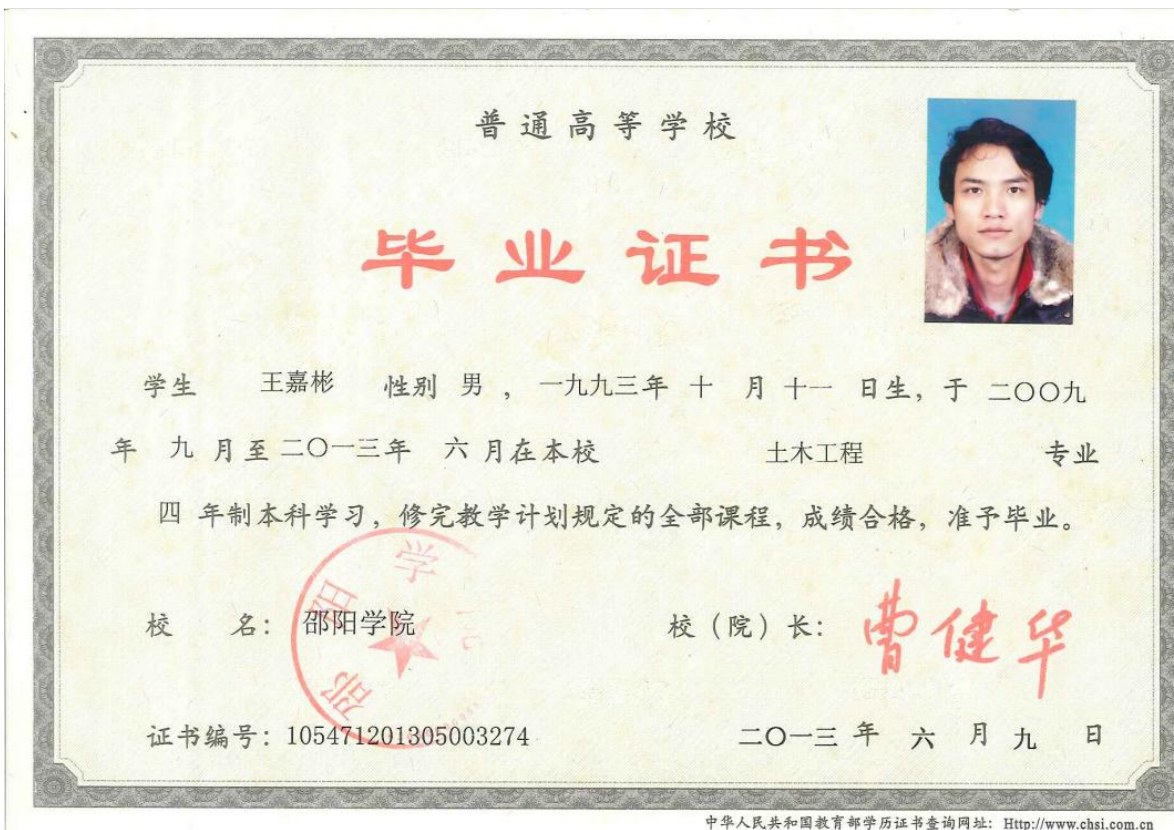 普通高等学校
毕业证书
学生 王嘉彬 性别 男 ，一九九三年 十 月 十一 日生，于 二〇〇九
年 九 月至二〇一三年 六 月在本校 土木工程 专业
四 年制本科学习，修完教学计划规定的全部课程，成绩合格，准予毕业。
邵阳学
校 名：邵阳学院 校（院）长：曹健华
证书编号：105471201305003274 二〇一三 年 六 月 九 日
中华人民共和国教育部学历证书查询网址：Http://www.chsi.com.cn